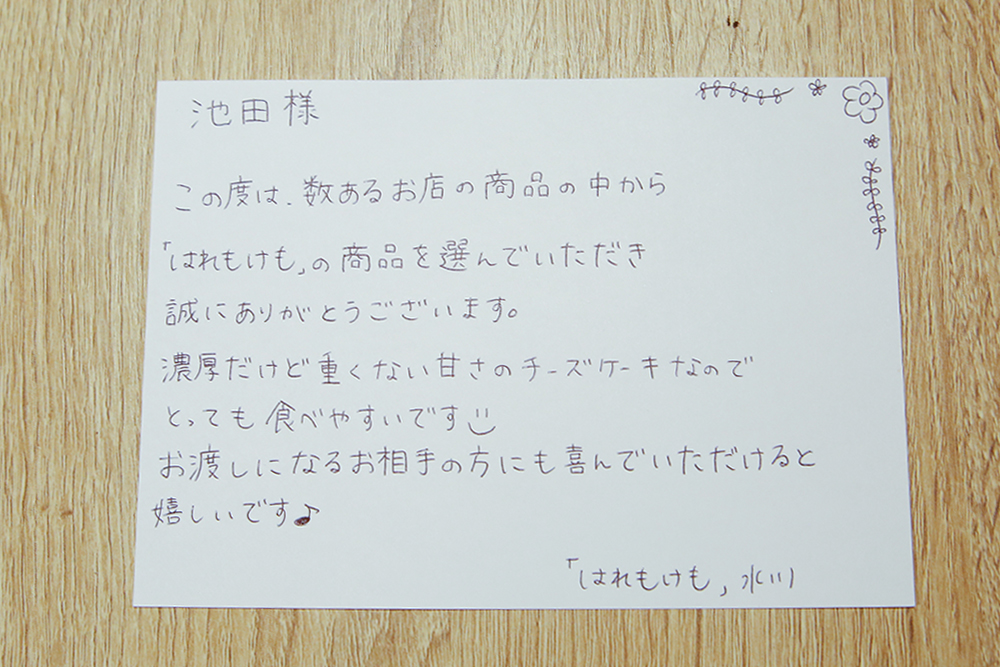 池田様
この度は、数あるお店の商品の中から
「はれもけも」の商品を選んでいただき
誠にありがとうございます。
濃厚だけど重くない甘さのチーズケーキなので
とっても食べやすいです
お渡しになるお相手の方にも喜んでいただけると
嬉しいです♪
「はれもけも」水川